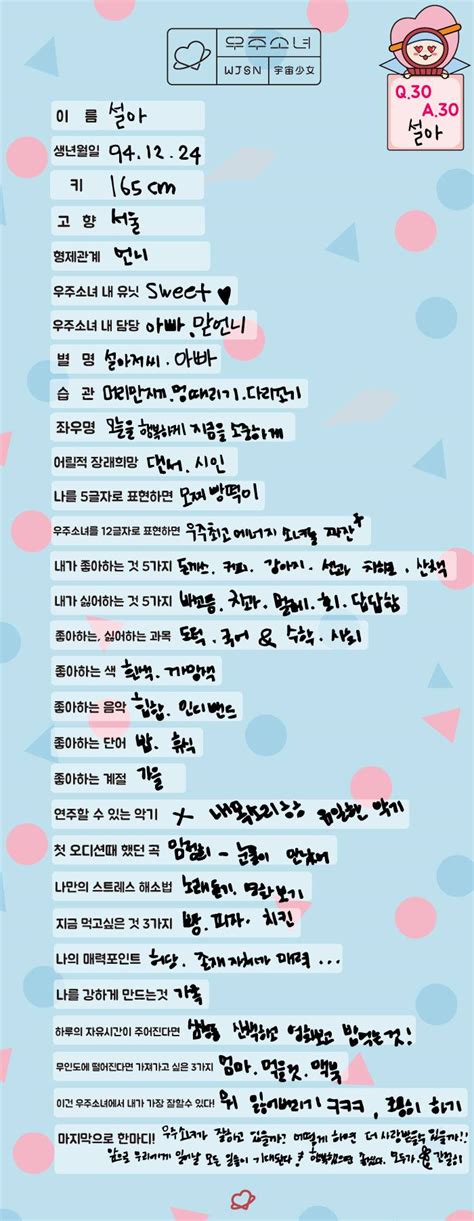 우주소녀
WJSN 宇宙少女
Q.30
A.30
설아
이 름 설아
생년월일 94.12.24
키 165cm
고 향 서울
형제관계 언니
우주소녀 내 유닛 Sweet ♥
우주소녀 내 담당 아빠, 맏언니
별 명 설아저씨. 아빠
습 관 머리만지기, 멍때리기. 다리꼬기
좌우명 오늘을 행복하게 지금을 소중하게
어릴적 장래희망 댄서, 시인
나를 5글자로 표현하면 모찌빵떡이
우주소녀를 12글자로 표현하면 우주최고에너지 소녀들
내가 좋아하는 것 5가지 돈까스. 커피. 강아지. 산책
내가 싫어하는 것 5가지 치과. 벌레. 회. 답답함
좋아하는, 싫어하는 과목 도덕. 국어 & 수학. 사회
좋아하는 색 흰색. 까망색
좋아하는 음악 힙합. 인디밴드
좋아하는 단어 밥. 휴식
좋아하는 계절 가을
연주할 수 있는 악기 X 내목소리 유일한 악기
첫 오디션때 했던 곡 - 눈물이 안났어
나만의 스트레스 해소법 노래듣기, 영화보기
지금 먹고싶은 것 3가지 빵. 피자. 치킨
나의 매력포인트 허당. 존재자체가 매력...
나를 강하게 만드는것 가족
하루의 자유시간이 주어진다면 산책하고 영화보고 밥먹는것!
무인도에 떨어진다면 가져가고 싶은 3가지 엄마. 먹을것. 맥북
이건 우주소녀에서 내가 가장 잘할수 있다! 뭐 잃어버리기 ㅋㅋㅋ,
마지막으로 한마디! 우주소녀가 잘하고 있을까? 어떻게 하면 더 사랑받을수 있을까!!
앞으로 우리에게 일어날 모든 일들이 기대된다! 행복했으면 좋겠다. 모두가 간절히